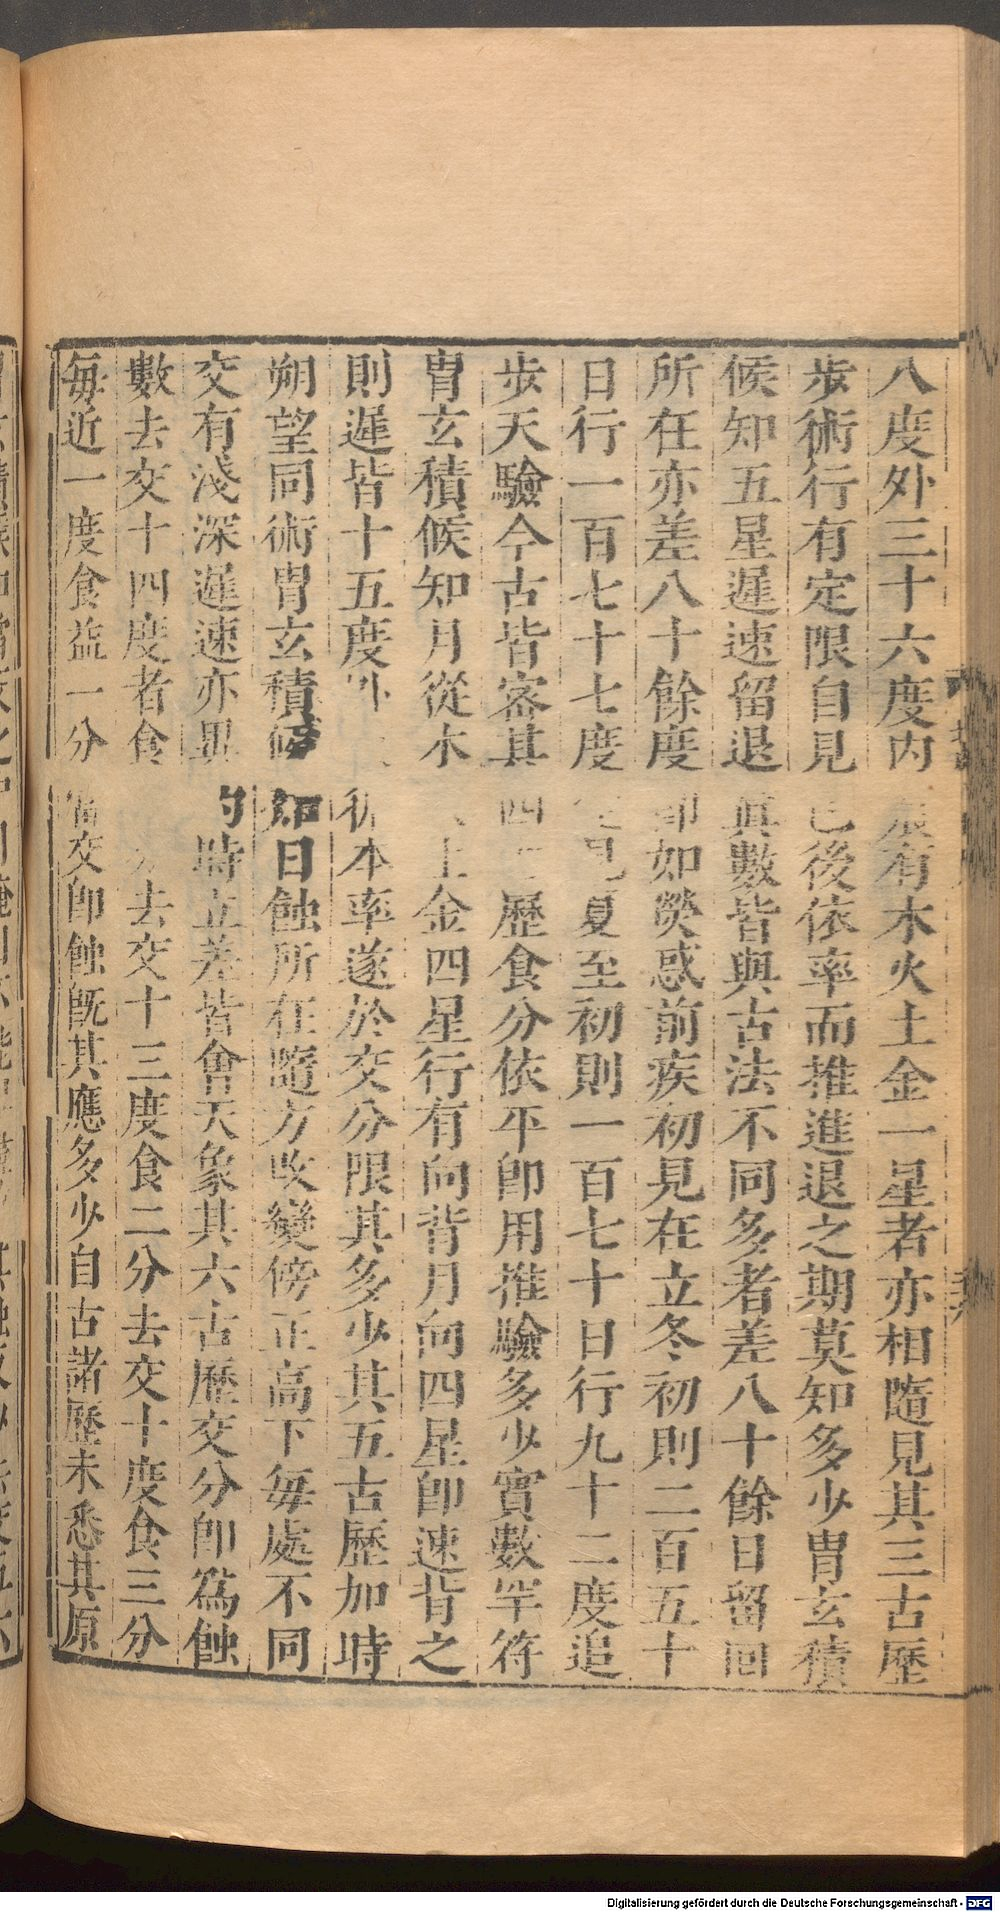 八度外三十六度内晨有木火土金一星者亦相隨見其三古歷
步術行有定限自見已後依率而推進退之期莫知多少胄玄積
候知五星遲速留退眞數皆與古法不同多者差八十餘日留回
所在亦差八十餘度卽如熒惑前疾初見在立冬初則二百五十
日行一百七十七度見夏至初則一百七十日行九十二度追
步天驗今古皆密其四歷食分依平卽用推驗多少實數罕符
胄玄積候知月從木土金四星行有向背月向四星卽速背之
則遲皆十五度外循本率遂於交分限其多少其五古歷加時
朔望同術胄玄積候知日蝕所在隨方改變傍正高下每處不同
交有淺深遲速亦異約時立差皆會天象其六古歷交分卽爲蝕
數去交十四度者食去交十三度食二分去交十度食三分
每近一度食益一分當交卽蝕旣其應多少自古諸歷未悉其原
Digitalisierung gefördert durch die Deutsche Forschungsgemeinschaft - DFG